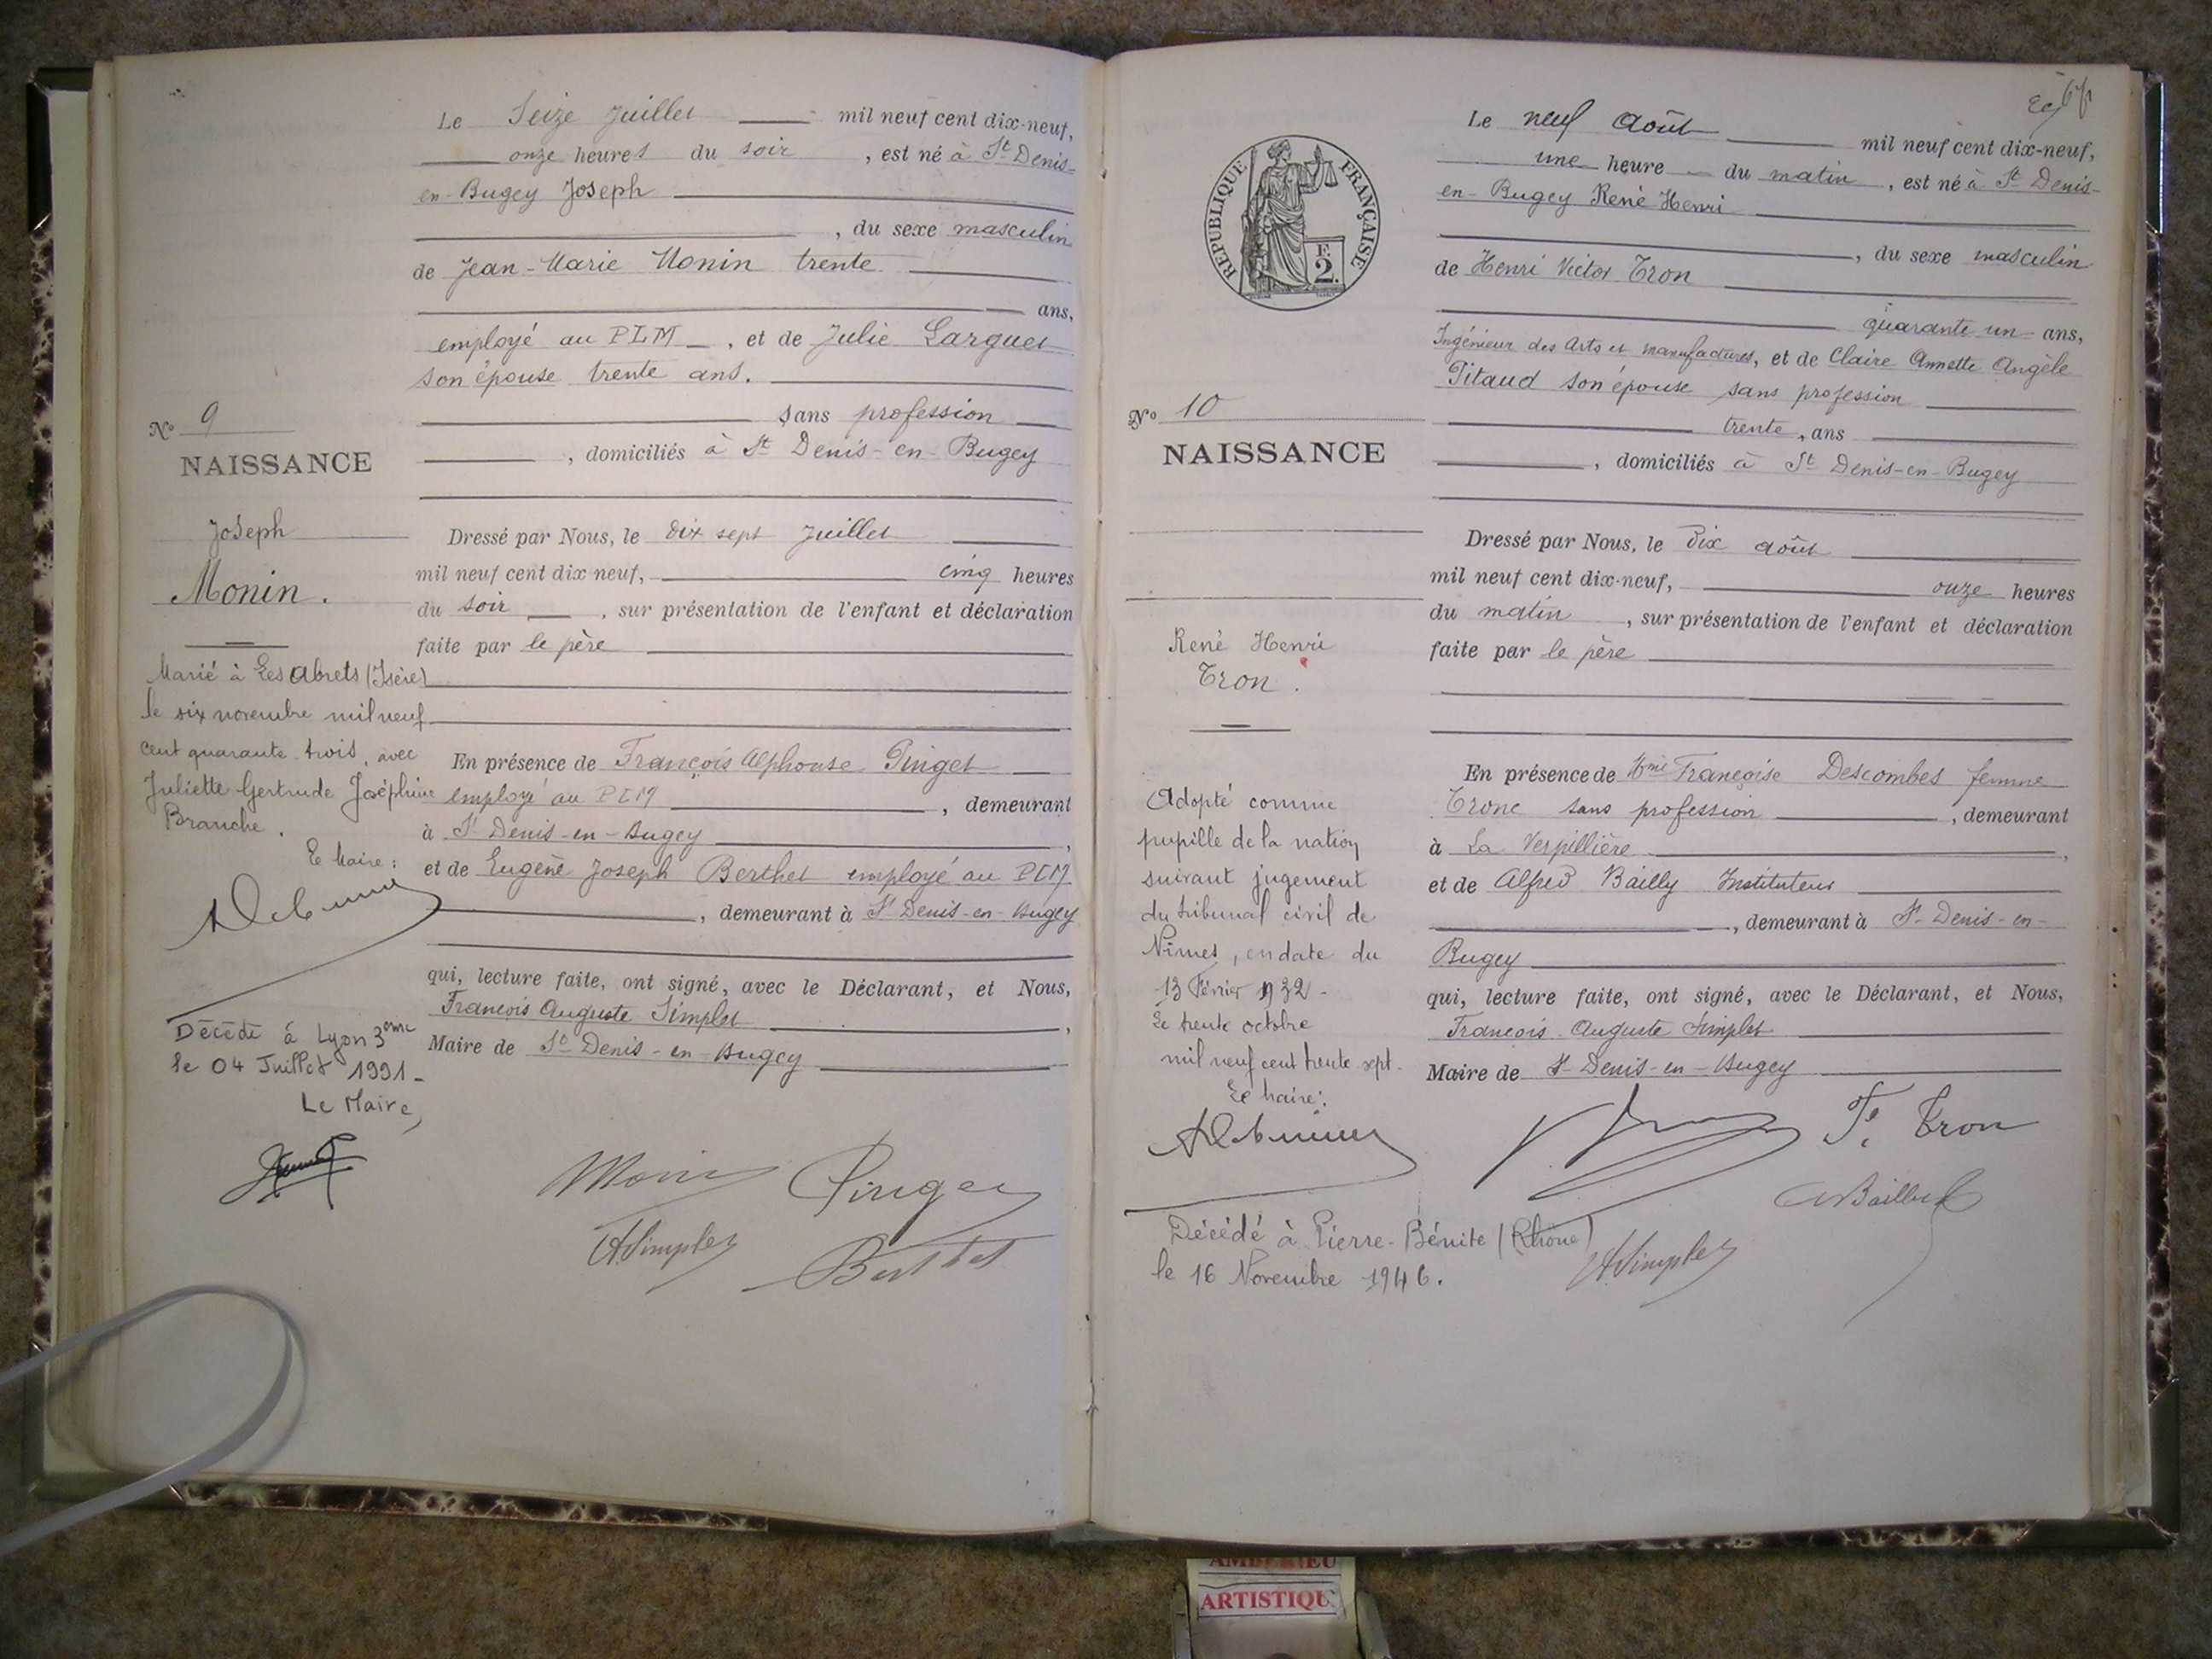 Le Seize Juillet mil neuf cent dix-neuf,
onze heures du soir, est né à St Denis-
en-Bugey Joseph
, du sexe masculin
de Jean-Marie Monin trente
ans,
employé au PLM, et de Julie Larguet
son épouse trente ans.
sans profession
, domiciliés à St Denis-en-Bugey
Nº 9
NAISSANCE
Joseph
Monin.
Dressé par Nous, le dix sept Juillet
mil neuf cent dix neuf, cinq heures
du soir, sur présentation de l'enfant et déclaration
faite par le père
Marié à Les Abrets (Isère)
le six novembre mil neuf
cent quarante trois, avec
Juliette Gertrude Joséphine
Branche.
Le Maire :
En présence de François Alphonse Pinget
employé au PLM, demeurant
à St Denis-en-Bugey,
et de Eugène Joseph Berthet employé au PLM
, demeurant à St Denis-en-Bugey
qui, lecture faite, ont signé, avec le Déclarant, et Nous,
François Auguste Simplet,
Maire de St Denis-en-Bugey
Décédé à Lyon 3ème
le 04 Juillet 1991-
Le Maire,
Monin Pinget
ASimplet Berthet
Le neuf août mil neuf cent dix-neuf,
une heure du matin, est né à St Denis-
en-Bugey René Henri
, du sexe masculin
de Henri Victor Tron
quarante un ans,
Ingénieur des Arts et manufactures, et de Claire Annette Angèle
Pitaud son épouse sans profession
trente, ans
, domiciliés à St Denis-en-Bugey
RÉPUBLIQUE FRANÇAISE
F.
2.
Nº 10
NAISSANCE
René Henri
Tron.
Dressé par Nous, le dix août
mil neuf cent dix-neuf, onze heures
du matin, sur présentation de l'enfant et déclaration
faite par le père
En présence de Mme Françoise Descombes femme
Trone sans profession, demeurant
à La Verpillière,
et de Alfred Bailly Instituteur
, demeurant à St Denis-en-
Bugey
qui, lecture faite, ont signé, avec le Déclarant, et Nous,
François Auguste Simplet
Maire de St Denis-en-Bugey
Adopté comme
pupille de la nation
suivant jugement
du tribunal civil de
Nîmes, en date du
13 Février 1932-
Le trente octobre
mil neuf cent trente sept.
Le Maire :
F. Tron
ABailly
ASimplet
Décédé à Pierre-Bénite (Rhône)
le 16 Novembre 1946.
ARTISTIQU